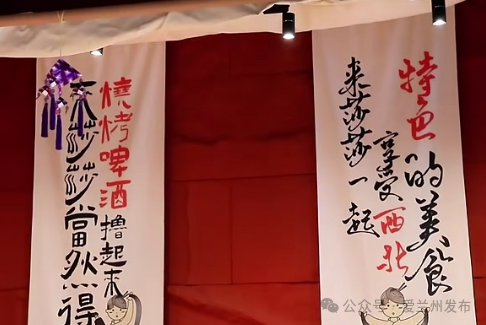 来莎莎當然得
燒烤啤酒撸起来
来莎莎一起
享受西北
特色的美食
公众号·爱兰州发布